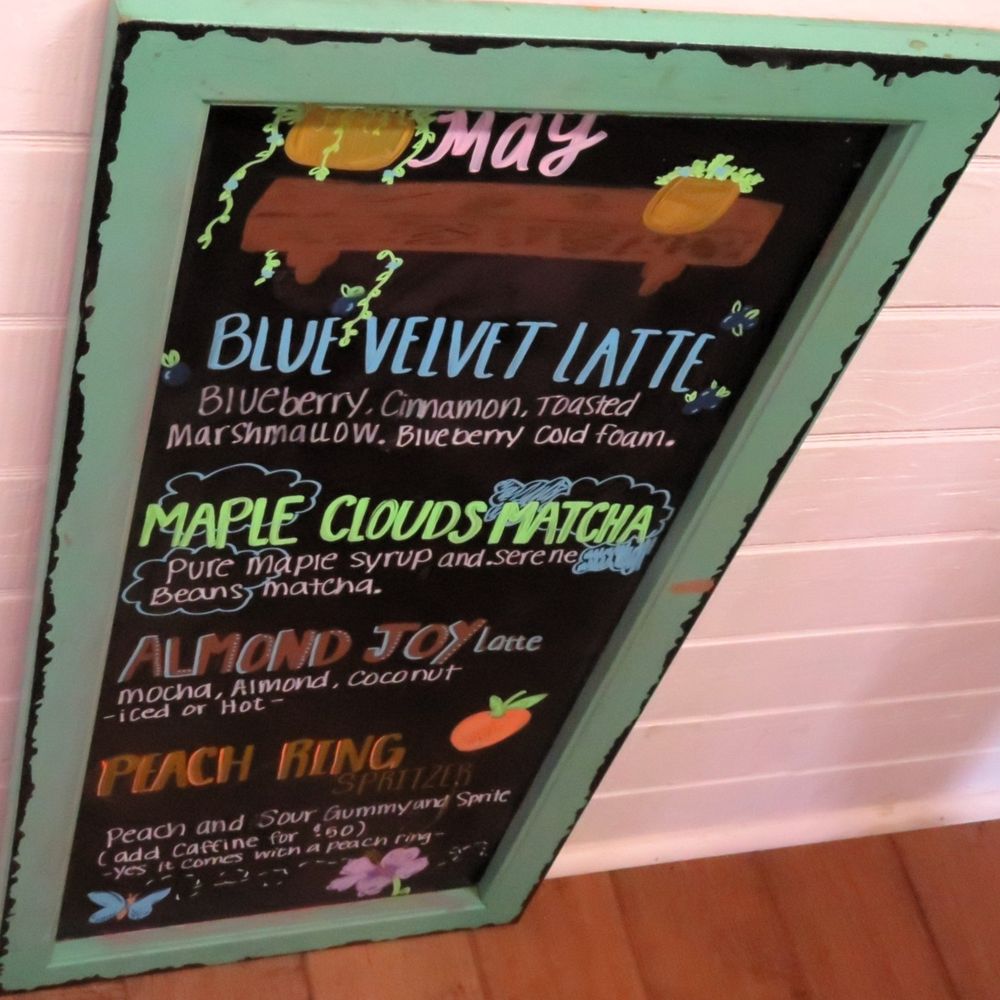 May
BLUE VELVET LATTE
Blueberry, Cinnamon, Toasted
Marshmallow. Blueberry Cold foam.
MAPLE CLOUDS MATCHA
Pure maple syrup and. serene
Beans matcha.
ALMOND JOY Latte
mocha, Almond, Coconut
-iced or Hot-
PEACH RING
SPRITZER
Peach and Sour Gummy and Sprite
(add Caffine for $.50)
-yes it comes with a peach ring-